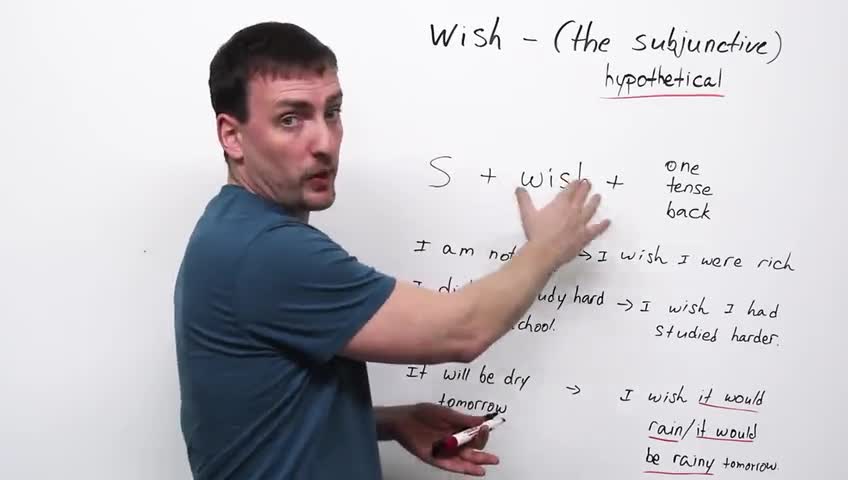 Wish - (the subjunctive)
hypothetical
S + wish + one
tense
back
I am not → I wish I were rich
I hard → I wish I had
studied harder.
It will be dry → I wish it would
tomorrow rain/it would
be rainy tomorrow.